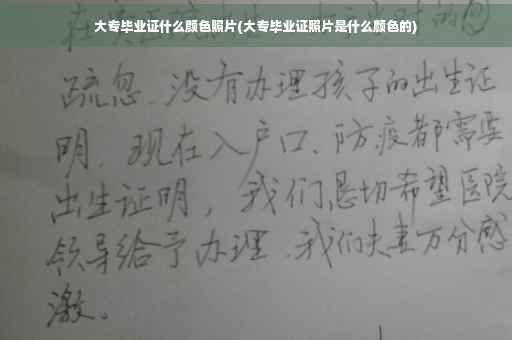 大专毕业证什么颜色照片(大专毕业证照片是什么颜色的)
疏忽、没有办理孩子的出生证
明、现在入户口、防疫都需要
出生证明，我们恳切希望医院
领导给予办理、我们夫妻万分感
激。